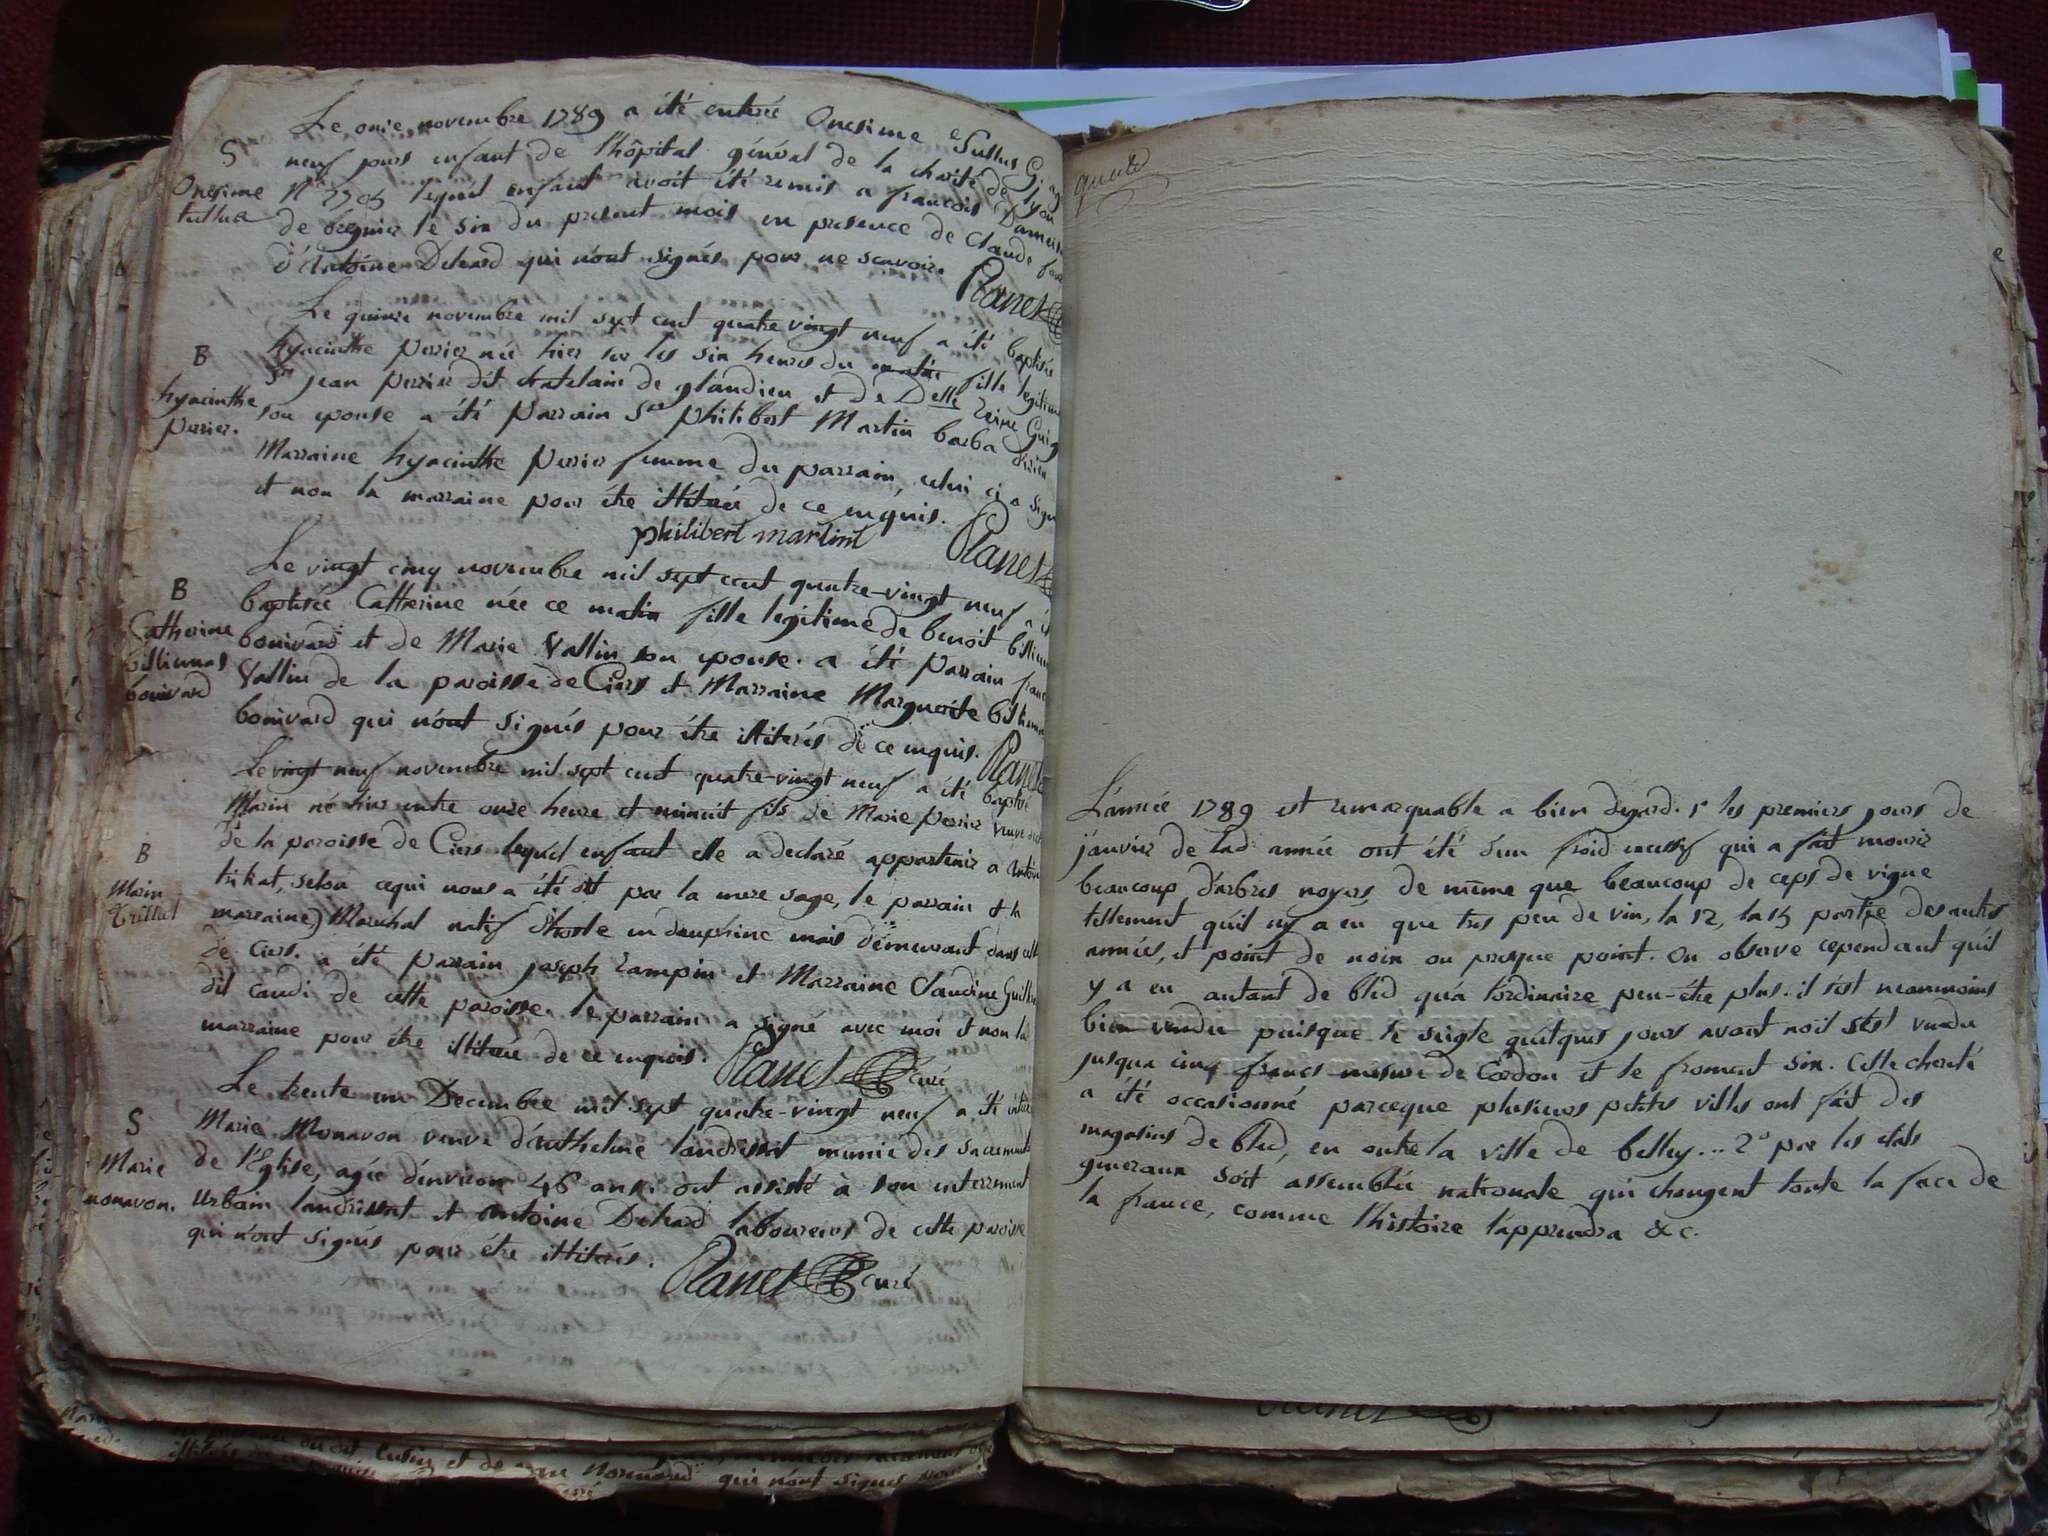 Le onze novembre 1789 a été enterré Onesime Tullus
S
neuf jours enfant de l'hôpital général de la charité de Lyon
Onesime
tullus
N° lequel enfant avoit été remis a francois
de bregnier le six du present mois en presence de Claude
d'Antoine Dchard qui n'ont signés pour ne scavoir.
Planet
Le quinze novembre mil sept cent quatre vingt neuf a été baptisée
B
hyacinthe
perrier.
hyacinthe perrier née hier sur les six heures du matin fille legitime
Sr jean perrier dit chatelain de glandieu et de Delle reine
son epouse a été parrain Sr philibert Martin barba
Marraine hyacinthe perrier femme du parrain, celui ci a signé
et non la marraine pour être illiterée de ce enquis.
philibert martint
Planet
Le vingt cinq novembre mil sept cent quatre-vingt neuf a é
B
Catherine
billiemas
bonivard
baptisée Catherine née ce matin fille legitime de benoit
bonivard et de Marie Vallin son epouse. a été parrain
Vallin de la paroisse de Ciers et Marraine Marguerite
bonivard qui n'ont signés pour être illiterés de ce enquis.
Planet
Le vingt neuf novembre mil sept cent quatre-vingt neuf a été baptisé
Marin né hier entre onze heure et minuit fils de Marie perrier veuve
B
Marin
trillat
de la paroisse de Ciers lequel enfant elle a declaré appartenir a
trillat, selon cequi nous a été dit par la mere sage, le parrain et la
marraine) Marechal natif en dauphiné mais demeurant dans
de Ciers. a été parrain joseph rampin et Marraine Claudine
dit caudi de cette paroisse. le parrain a signé avec moi et non la
marraine pour être illiterée de ce enquis.
Planet curé
Le trente un Decembre mil sept quatre-vingt neuf a été
S
Marie
monavon.
Marie Monavon veuve d'anthelme landrissat munie des sacrements
de l'Eglise, agée d'environ 46 ans. ont assisté à son enterrement
Urbain landrissat et Antoine Dchard laboureurs de cette paroisse
qui n'ont signés pour être illiterés.
Planet curé
L'année 1789 est remarquable a bien d'egard. 1° les premiers jours de
janvier de lad. année ont été d'un froid excessif qui a fait mourir
beaucoup d'arbres noyers de même que beaucoup de ceps de vigne
tellement qu'il ny a eu que tres peu de vin, la 12, la 15 partie des autres
années, et point de noix ou presque point. On observe cependant qu'il
y a eu autant de bled qu'a l'ordinaire peu-être plus. il s'est neammoins
bien vendu puisque le seigle quelques jours avant noil s'est vendu
jusqua cinq francs mesure de Cordon et le froment six. Cette cherté
a été occasionné parceque plusieurs petites villes ont fait des
magasins de bled, en outre la ville de belley... 2° par les etats
generaux soit assemblée nationale qui changent toute la face de
la france, comme l'histoire l'apprendra &c.